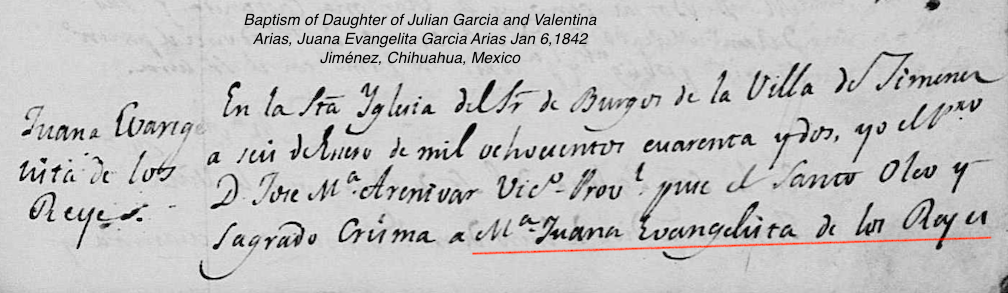 Baptism of Daughter of Julian Garcia and Valentina
Arias, Juana Evangelita Garcia Arias Jan 6,1842
Jiménez, Chihuahua, Mexico
Juana Evange
lista de los
Reyes.
En la Sta Yglesia del Sr de Burgos de la Villa de Jimenez
a seis de Enero de mil ochocientos cuarenta y dos, yo el Pro
D. Jose Ma. Arenivar Vico. Provl. puse el Santo Oleo y
Sagrado Crisma a Ma. Juana Evangelista de los Reyes